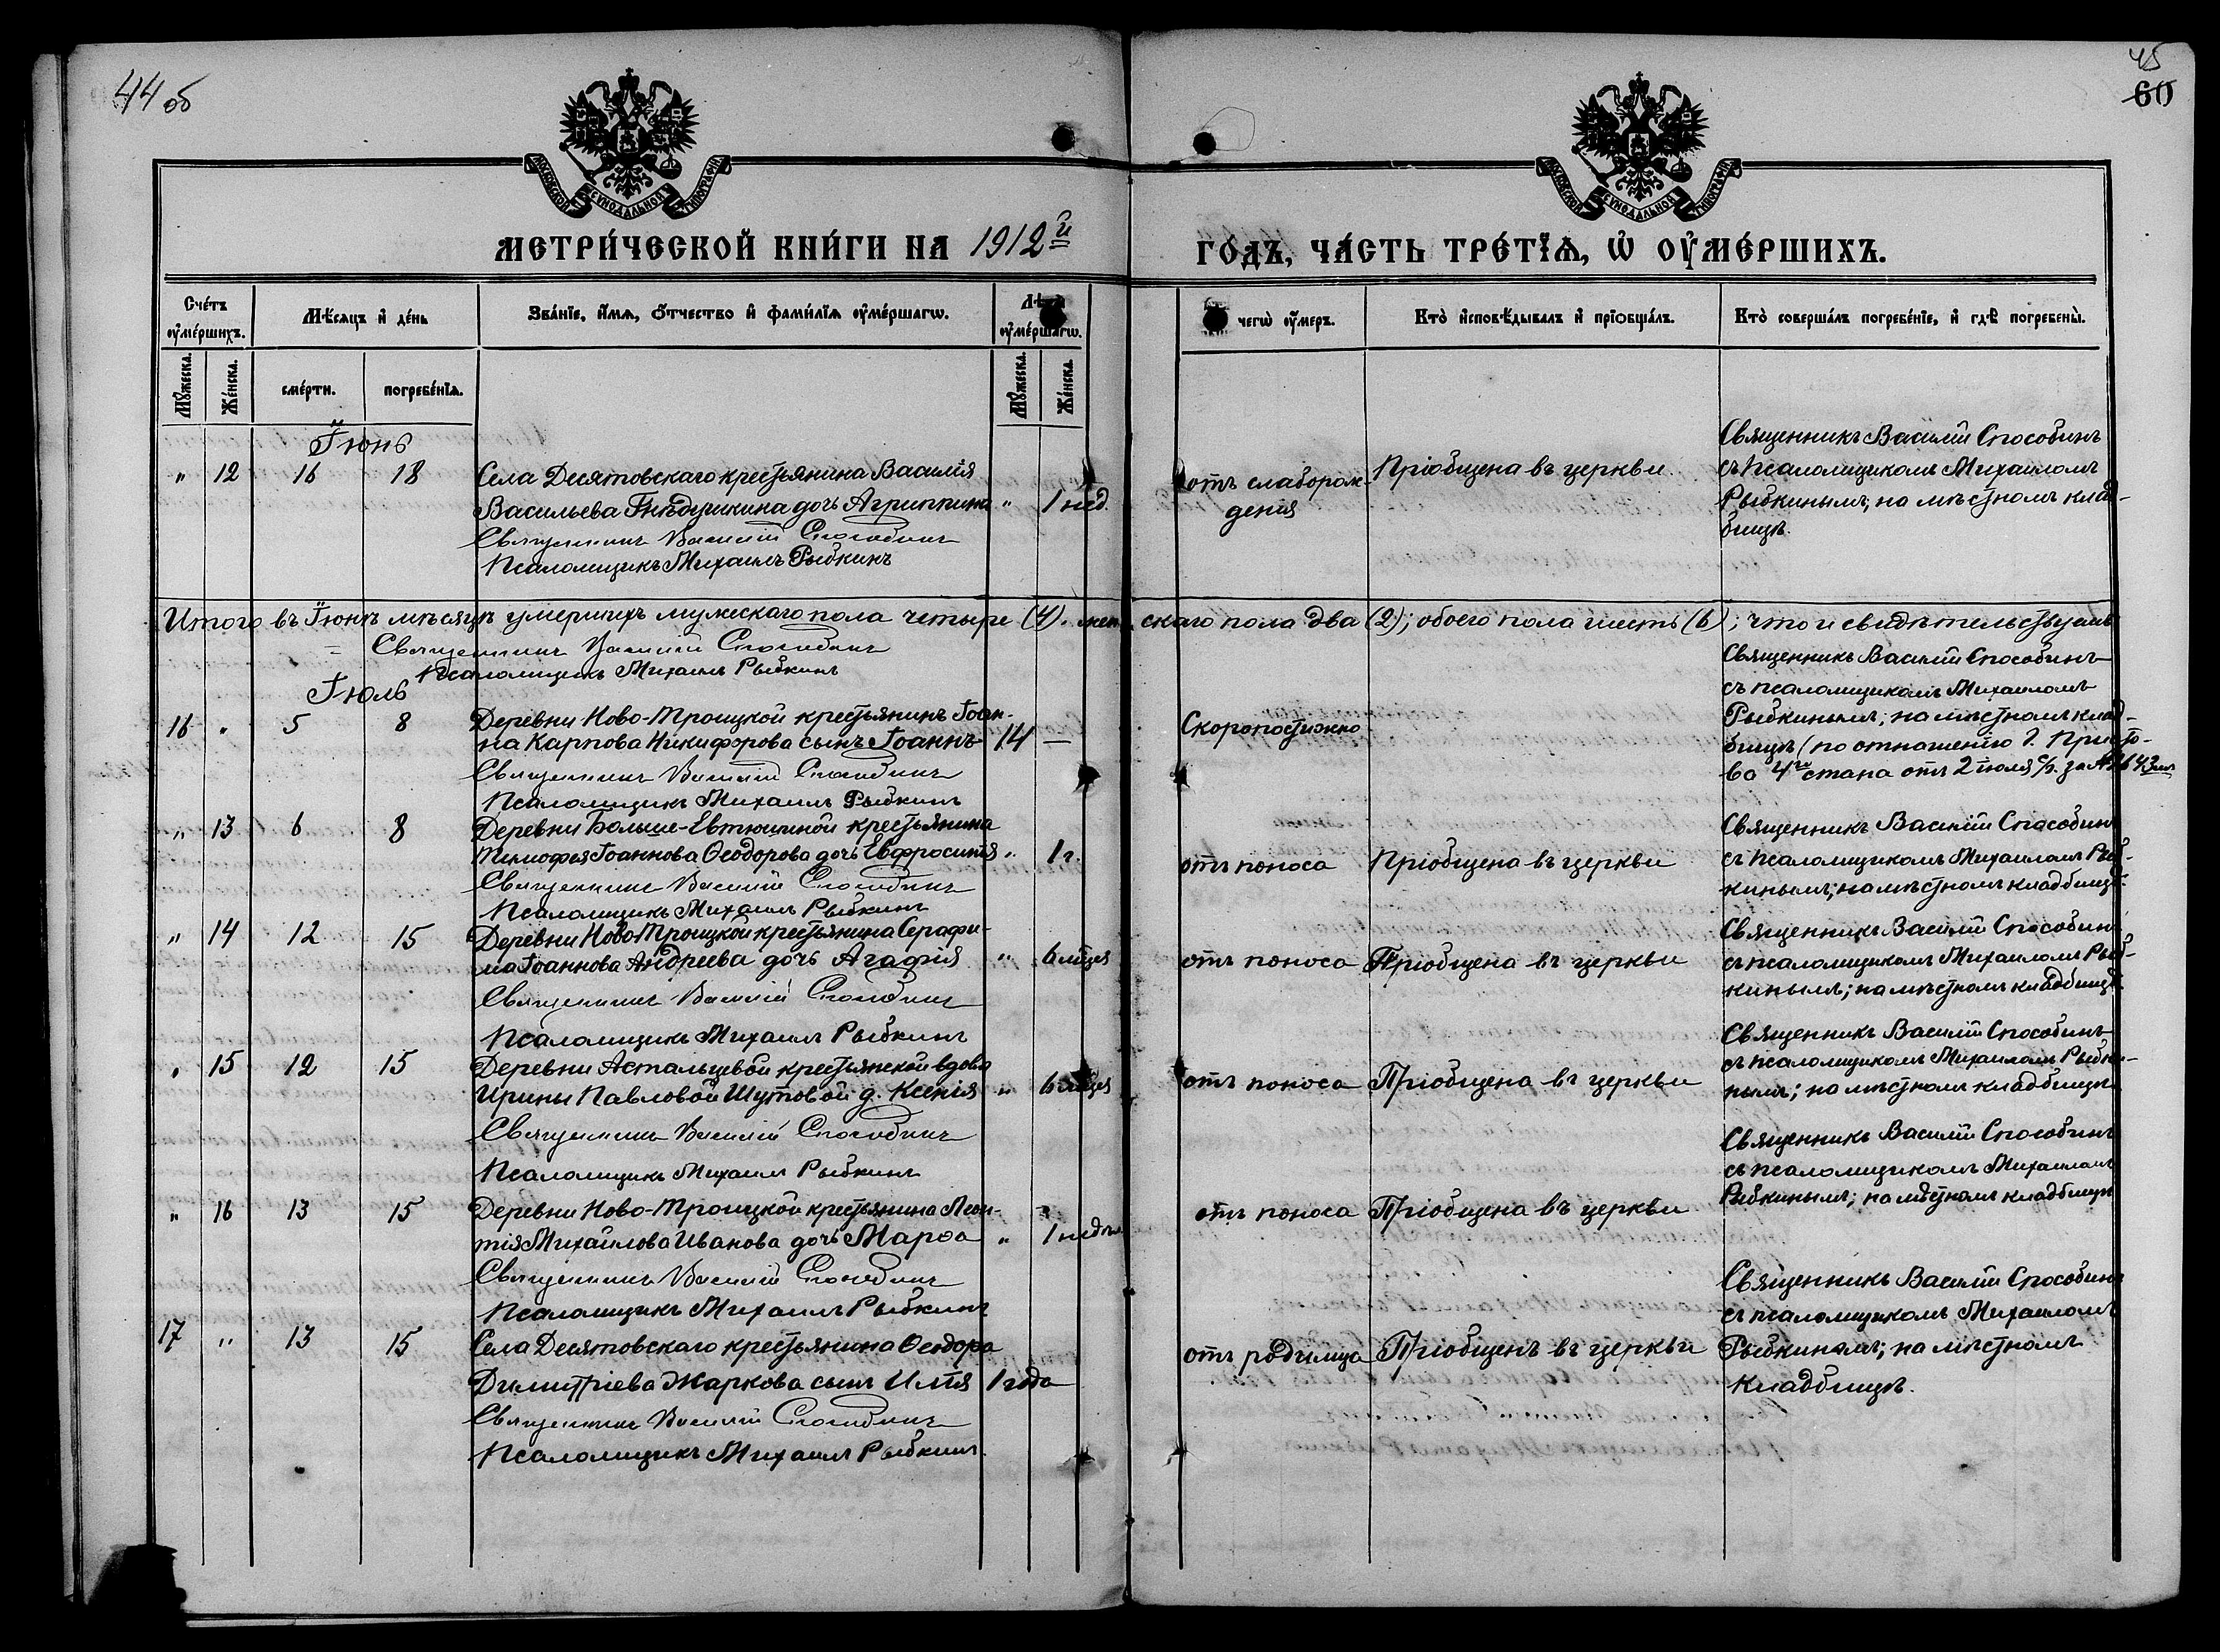 44 об
45
60
МОСКОВСКОЙ СѴНОДАЛЬНОЙ ТИПОГРАФІИ
МОСКОВСКОЙ СѴНОДАЛЬНОЙ ТИПОГРАФІИ
МЕТРИ́ЧЕСКОЙ КНИ́ГИ НА 1912й
ГО́ДЪ, ЧА́СТЬ ТРЕ́ТЇѦ, Ѡ҆ ОУ҆МЕ́РШИХЪ.
Сче́тъ оу҆ме́ршихъ.
Мѣ́сяцъ и҆ де́нь
Зва́нїе, и҆́мѧ, ѻ҆́тчество и҆ фами́лїѧ оу҆ме́ршагѡ.
Лѣ́та оу҆ме́ршагѡ.
чегѡ̀ оу҆́меръ.
Кто̀ и҆сповѣ́дывалъ и҆ прїѻбща́лъ.
Кто̀ соверша́лъ погребе́нїе, и҆ гдѣ̀ погребены̀.
Мꙋ́жеска.
Же́нска.
сме́рти.
погребе́нїѧ.
Мꙋ́жеска.
Же́нска.
Іюнь
" 12 16 18
Села Десятовскаго крестьянина Василія
Васильева Гнѣдушкина дочь Агриппина " 1 нед.
Священникъ Василій Способинъ
Псаломщикъ Михаилъ Рыбкинъ
отъ слаборож-
денія
Пріобщена въ церкви
Священникъ Василій Способинъ
съ псаломщикомъ Михаиломъ
Рыбкинымъ, на мѣстномъ клад-
бищѣ.
Итого въ Іюнѣ мѣсяцѣ умершихъ мужескаго пола четыре (4), женскаго пола два (2); обоего пола шесть (6); что и свидѣтельствуемъ
Священникъ Василій Способинъ
Псаломщикъ Михаилъ Рыбкинъ
Іюль
16 " 5 8
Деревни Ново-Троицкой крестьянинъ Іоан-
на Карпова Никифорова сынъ Іоаннъ 14 —
Священникъ Василій Способинъ
Псаломщикъ Михаилъ Рыбкинъ
Скоропостижно
Священникъ Василій Способинъ
съ псаломщикомъ Михаиломъ
Рыбкинымъ; на мѣстномъ клад-
бищѣ (по отношенію г. Приста-
ва 4го стана отъ 2 іюля с/г. за №
" 13 6 8
Деревни Больше-Евтюшиной крестьянина
Тимофея Іоаннова Ѳеодорова дочь Евфросинія " 1 г.
Священникъ Василій Способинъ
Псаломщикъ Михаилъ Рыбкинъ
отъ поноса
Пріобщена въ церкви
Священникъ Василій Способинъ
съ псаломщикомъ Михаиломъ Рыб-
кинымъ; на мѣстномъ кладбищѣ.
" 14 12 15
Деревни Ново-Троицкой крестьянина Серафи-
ма Іоаннова Андреева дочь Агафія " 6 мѣсяц
Священникъ Василій Способинъ
Псаломщикъ Михаилъ Рыбкинъ
отъ поноса
Пріобщена въ церкви
Священникъ Василій Способинъ
съ псаломщикомъ Михаиломъ Рыб-
кинымъ; на мѣстномъ кладбищѣ.
" 15 12 15
Деревни Астальцевой крестьянской вдовы
Ирины Павловой Шутовой д. Ксенія " 6 мѣсяц
Священникъ Василій Способинъ
Псаломщикъ Михаилъ Рыбкинъ
отъ поноса
Пріобщена въ церкви
Священникъ Василій Способинъ
съ псаломщикомъ Михаиломъ Рыбки-
нымъ; на мѣстномъ кладбищѣ
" 16 13 15
Деревни Ново-Троицкой крестьянина Леон-
тія Михайлова Иванова дочь Марѳа " 1 недѣли
Священникъ Василій Способинъ
Псаломщикъ Михаилъ Рыбкинъ
отъ поноса
Пріобщена въ церкви
Священникъ Василій Способинъ
съ псаломщикомъ Михаиломъ
Рыбкинымъ; на мѣстномъ кладбищѣ
17 " 13 15
Села Десятовскаго крестьянина Ѳеодора
Димитріева Жаркова сынъ Илія 1 года
Священникъ Василій Способинъ
Псаломщикъ Михаилъ Рыбкинъ.
отъ родимца
Пріобщенъ въ церкви
Священникъ Василій Способинъ
съ псаломщикомъ Михаиломъ
Рыбкинымъ; на мѣстномъ
кладбищѣ.